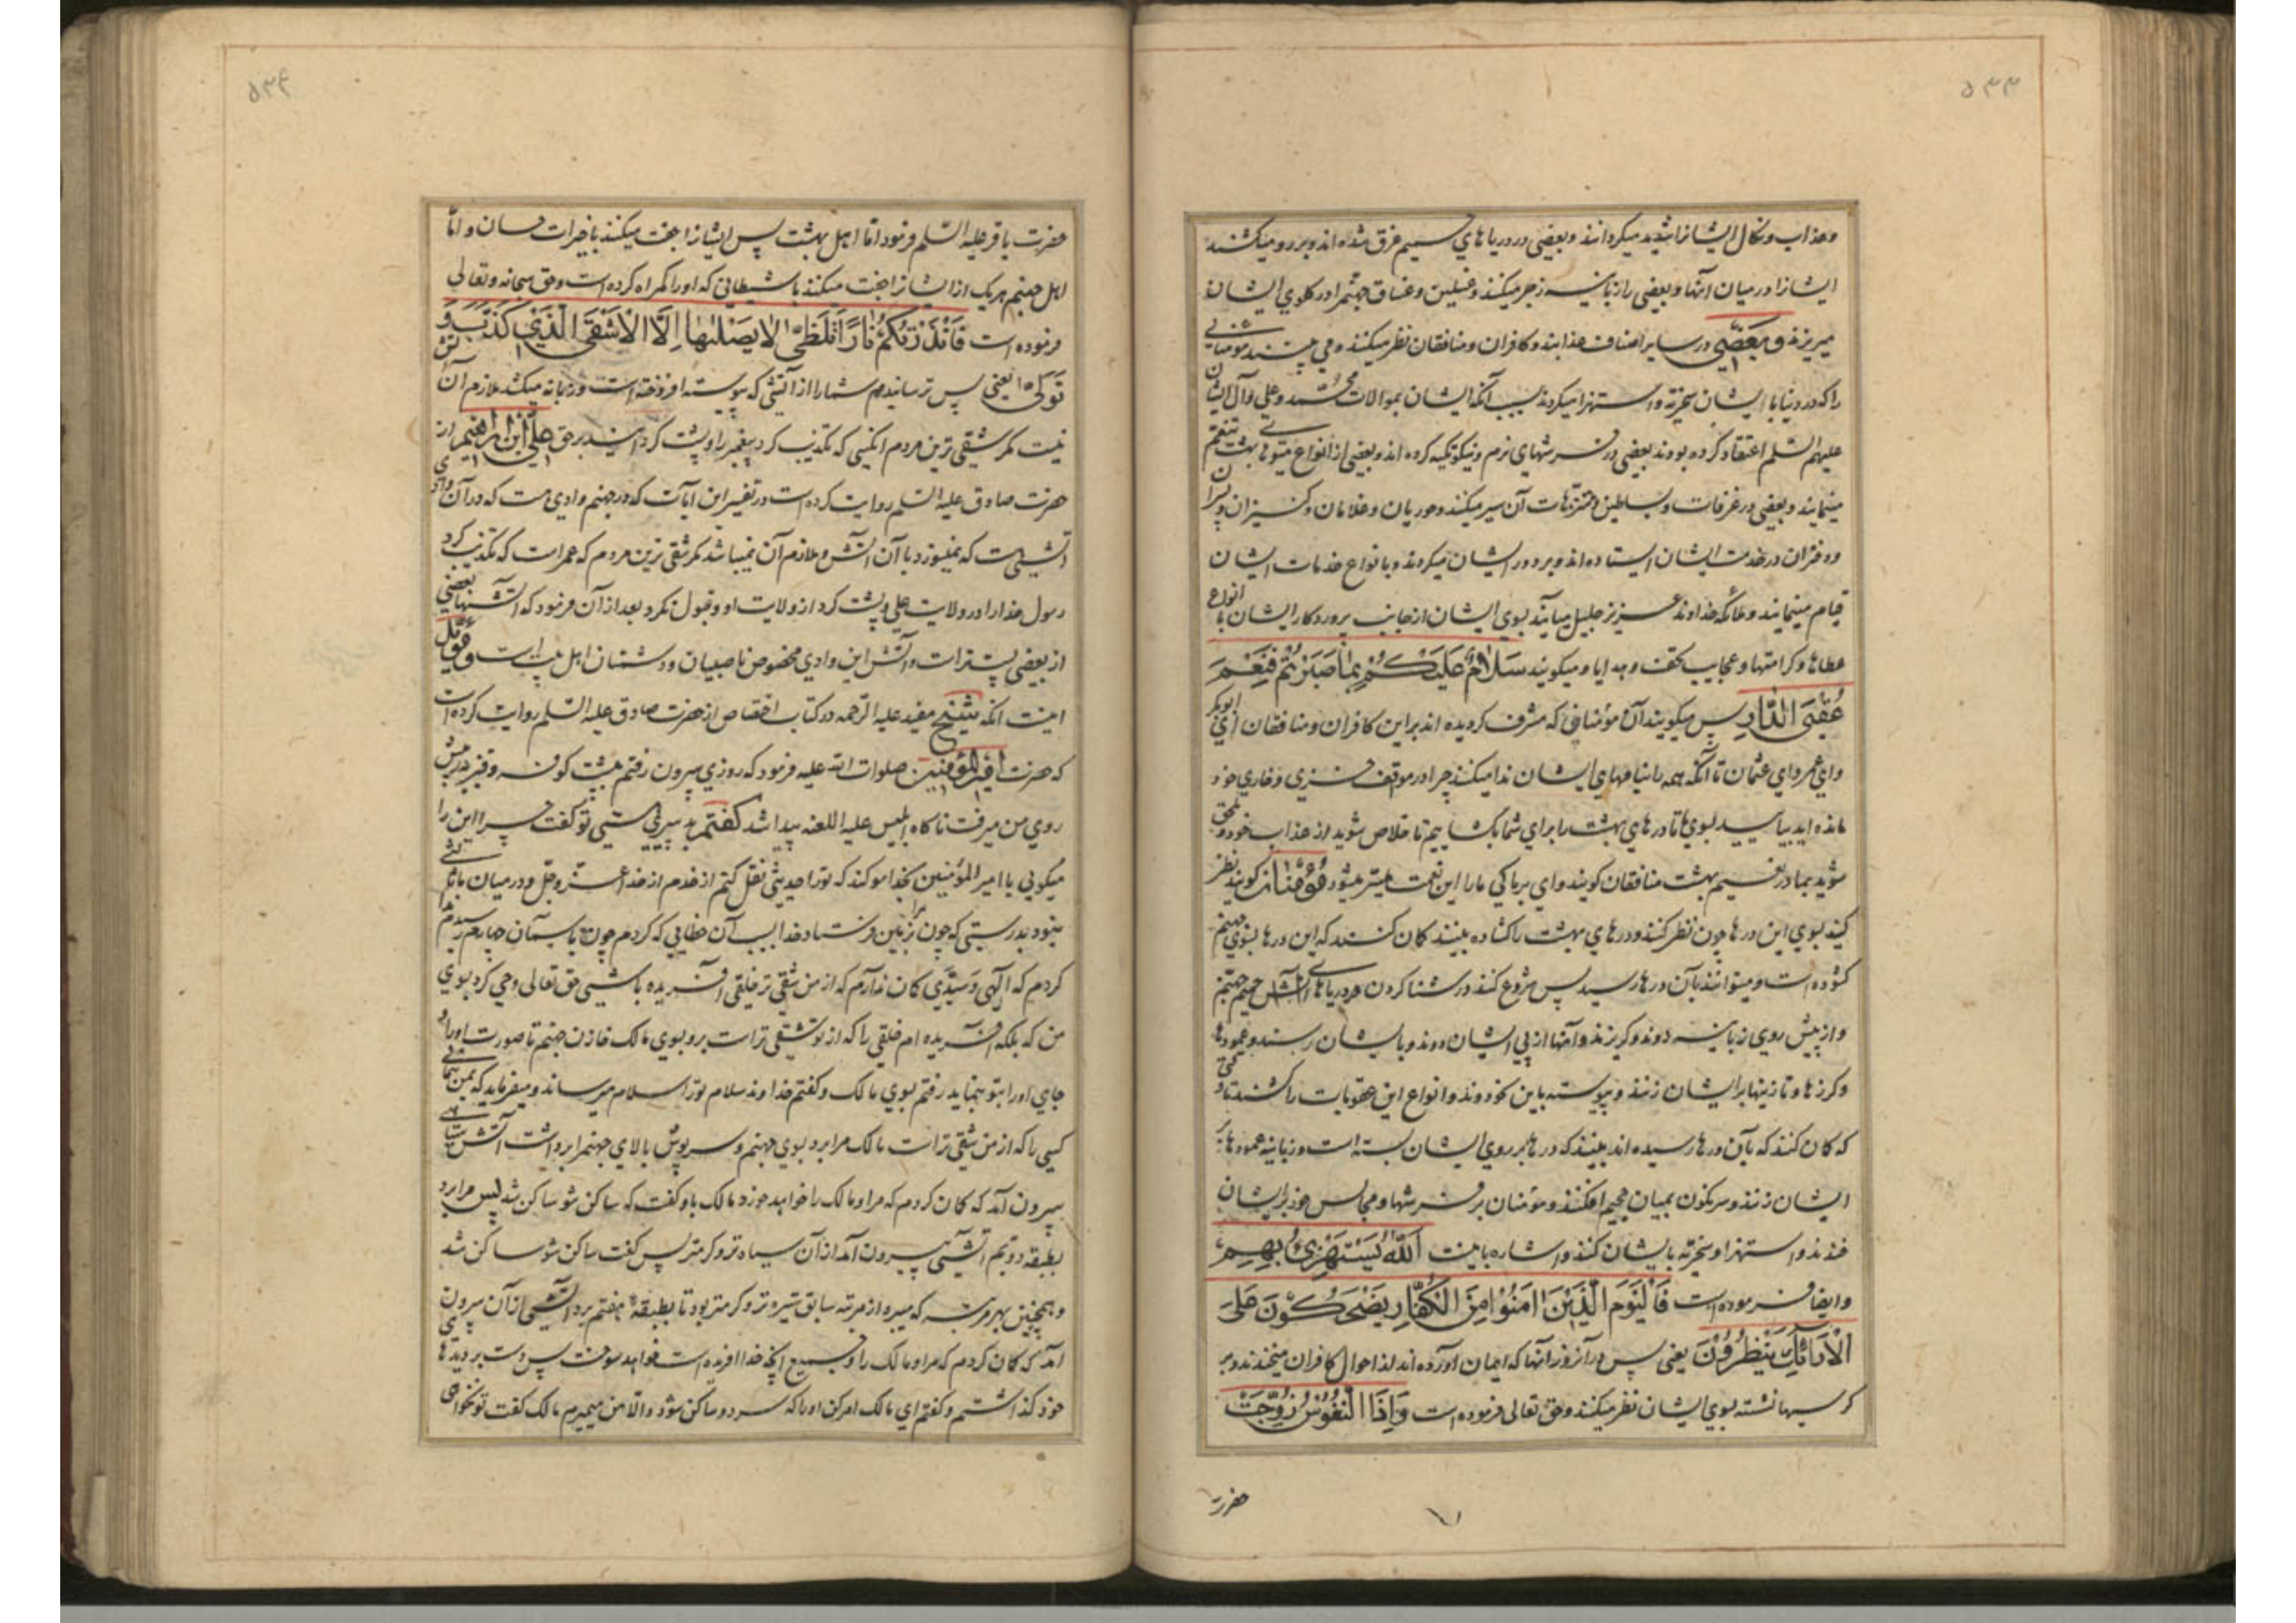 ۵۳۳
وعذاب ونکال ایشانرا شدید میکردانند وبعضی در دریاهای حمیم غرق شده اند وبر رو میکشند
ایشانرا در میان آنها وبعضی را زبانیه زجر میکنند وغسلین وغساق جهنم را در کلوی ایشان
میریزند وبعضی در سایر اصناف عذابند وکافران ومنافقان نظر میکنند ومی بینند مومنانی
را که در دنیا با ایشان سخریه واستهزا میکردند بسبب آنکه ایشان بموالات محمد وعلی وآل ایشان
علیهم السلم اعتقاد کرده بودند بعضی در فرشهای نرم ونیکو تکیه کرده اند وبعضی از انواع میوها بهشت تنعم
مینمایند وبعضی در غرفات وبساطین ومتنزهات آن سیر میکنند وحوریان وغلامان وکنیزان وپسران
ودختران در خدمت ایشان ایستاده اند وبر دور ایشان میکردند وبا نواع خدمات ایشان
قیام مینمایند وملائکه خداوند عزیز جلیل میآیند بسوی ایشان از جانب پروردکار ایشان با انواع
عطاها وکرامتها وعجایب تحف وهدایا ومیکویند سَلَامٌ عَلَيْكُمْ بِمَا صَبَرْتُمْ فَنِعْمَ
عُقْبَى الدَّارِ پس میکویند آن مؤمنانی که مشرف کردیده اند براین کافران ومنافقان ای ابوبکر
وای عمر وای عثمان تا آنکه همه را بنامهای ایشان ندا میکنند چرا در موقف خزی وخاری خود
مانده اید بیایید بسوی ما تا درهای بهشت را برای شما بکشاییم تا خلاص شوید از عذاب خود وملحق
شوید بما در نعیم بهشت منافقان کویند وای بر ما کی ما را این نعمت میسر میشود مؤمنان کویند نظر
کنید بسوی این درها چون نظر کنند ودرهای بهشت را کشاده بینند کمان کنند که این درها بسوی جهنم
کشوده است ومیتوانند بآن درها رسید پس شروع کنند در شنا کردن در دریاهای آتش حمیم جهنم
واز پیش روی زبانیه دوند وکریزند وآنها از پی ایشان دوند وبایشان رسند وعمودها
وکرزها وتازینها بر ایشان زنند وپیوسته باین نحو روند وانواع این عقوبات را کشند تا وقتی
که کمان کنند که بآن درها رسیده اند بینند که درها بر روی ایشان بسته است وزبانیه عمودها بر
ایشان زنند وسرنکون بمیان جحیم افکنند ومؤمنان بر فرشها ومجالس خود بر ایشان
خندند واستهزا وسخریه بایشان کنند واشاره باینست اَللّٰهُ يَسْتَهْزِئُ بِهِمْ
وایضا فرموده است فَالْيَوْمَ الَّذِيْنَ اٰمَنُوْا مِنَ الْكُفَّارِ يَضْحَكُوْنَ عَلَى
الْاَرَائِكِ يَنْظُرُوْنَ یعنی پس در آنروز آنها که ایمان آورده اند از احوال کافران میخندند وبر
کرسیها نشسته بسوی ایشان نظر میکنند وحق تعالی فرموده است وَاِذَا النُّفُوْسُ زُوِّجَتْ
حضرت
۵۳۴
حضرت باقر علیه السلم فرمود اما اهل بهشت پس ایشانرا جفت میکنند باخیرات حسان واما
اهل جهنم هریک از ایشانرا جفت میکنند با شیطانی که او را کمراه کرده است وحق سبحانه وتعالی
فرموده است فَاَنْذَرْتُكُمْ نَارًا تَلَظّٰى لَا يَصْلٰىهَا اِلَّا الْاَشْقَى الَّذِيْ كَذَّبَ وَ
تَوَلّٰى یعنی پس ترسانیدم شما را از آتشی که پیوسته افروخته است وزبانه میکشد ملازم آن آتش
نیست مکر شقی ترین مردم آنکسی که تکذیب کرد پیغمبر را وپشت کردانید بر حق علی ابن ابراهیم از
حضرت صادق علیه السلم روایت کرده است در تفسیر این آیات که در جهنم وادی هست که در آن وادی
آتشیست که نمیسوزد با آن آتش وملازم آن نمیباشد مکر شقی ترین مردم که عمر است که تکذیب کرد
رسول خدا را در ولایت علی وپشت کرد از ولایت او وقبول نکرد بعد از آن فرمود که آتشها بعضی
از بعضی پست تراست وآتش این وادی مخصوص ناصبیان ودشمنان اهل بیت است ومؤید
اینست آنکه شیخ مفید علیه الرحمه در کتاب اختصاص از حضرت صادق علیه السلم روایت کرده است
که حضرت امیرالمؤمنین صلوات الله علیه فرمود که روزی بیرون رفتم بپشت کوفه وقنبر در پیش
روی من میرفت ناکاه ابلیس علیه اللعنه پیدا شد کفتم بد پیری هستی تو کفت چرا این را
میکویی یا امیر المؤمنین بخدا سوکند که تو را حدیثی نقل کنم از خدم از خدا عزوجل ودر میان ما ثالثی
نبود بدرستی که چون بزمین فرستاد خدا بسبب آن خطایی که کردم چون باسمان چهارم رسیدم ندا
کردم که الهی وَسیّدی کمان ندارم که از من شقی تر خلقی آفریده باشی حق تعالی وحی کرد بسوی
من که بلکه آفریده ام خلقی را که از تو شقی تراست برو بسوی مالک خازن جهنم تا صورت او را و
جای او را بتو بنماید رفتم بسوی مالک وکفتم خداوند سلام تو را سلام میرساند ومیفرماید که بمن بنمائی
کسی را که از من شقی تراست مالک مرا برد بسوی جهنم وسرپوش بالای جهنم را برداشت آتش سیاهی
بیرون آمد که کمان کردم که مرا ومالک را خواهد خورد مالک باو کفت که ساکن شو ساکن شد پس مرا برد
بطبقه دویم آتشی بیرون آمد از آن سیاه تر وکرمتر پس کفت ساکن شو ساکن شد
وهمچنین بهر مرتبه که میبرد از مرتبه سابق تیره تر وکرمتر بود تا بطبقه هفتم برد آتشی از آن بیرون
آمد که کمان کردم که مرا ومالک را وجمیع آنچه خدا آفریده است خواهد سوخت پس دست بر دیدهای
خود کذاشتم وکفتم ای مالک امر کن او را که سرد وساکن شود والا من میمیرم مالک کفت تو نخواهی